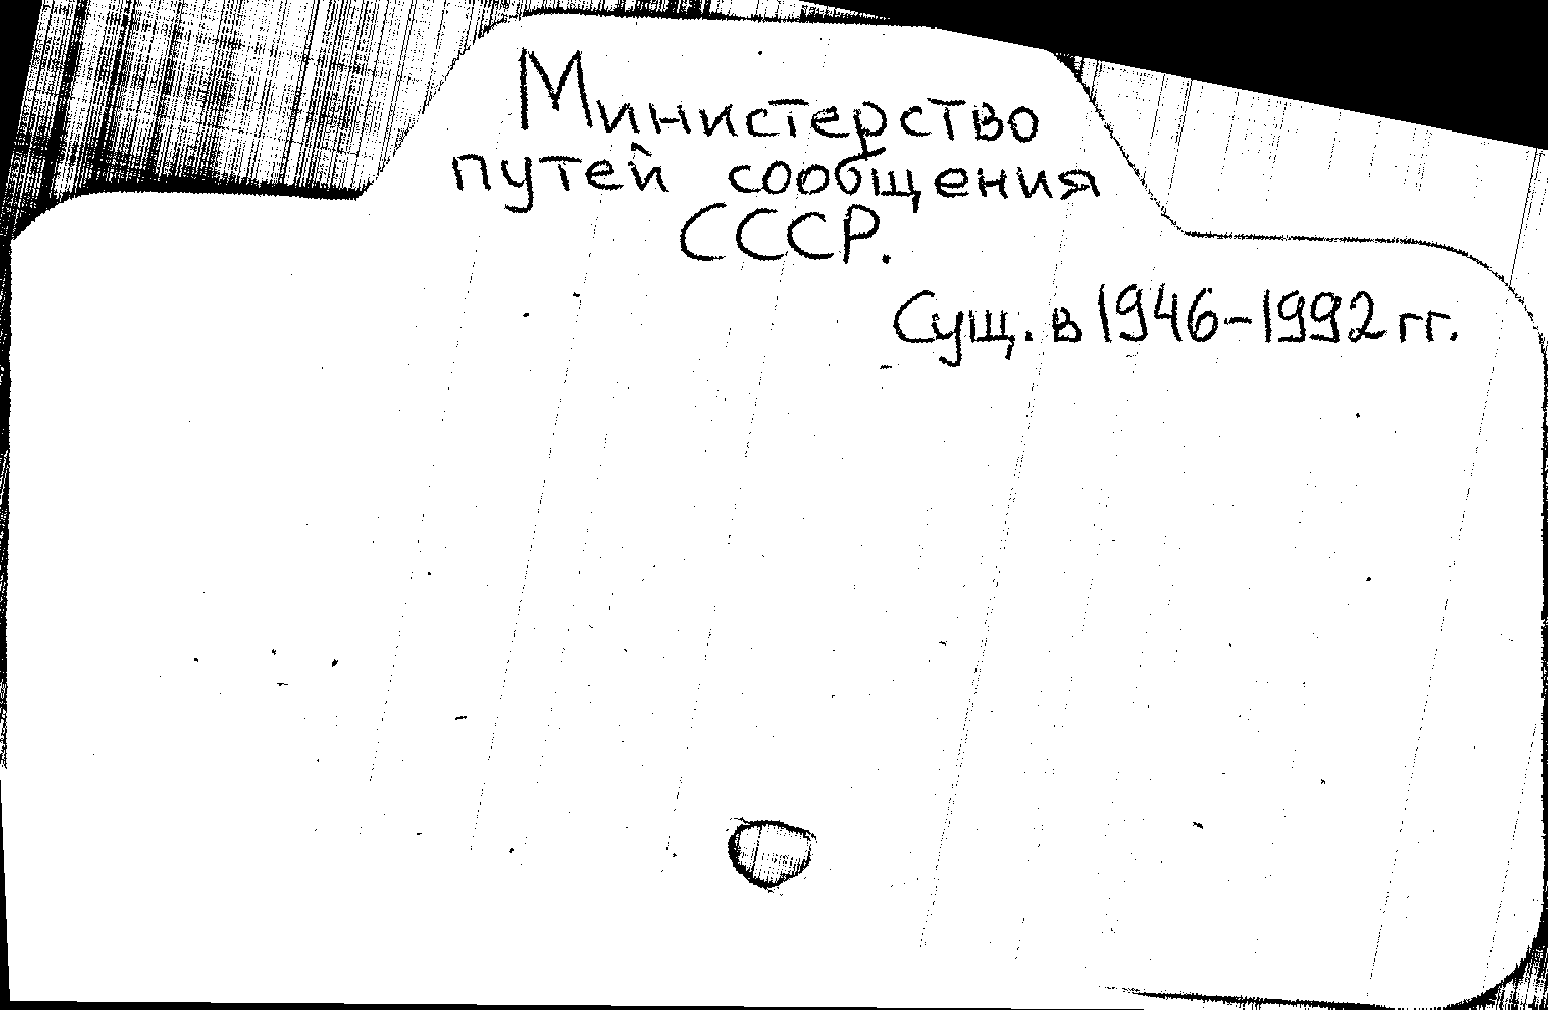 Министерство
путей сообщения
СССР.
Сущ. в 1946-1992 гг.